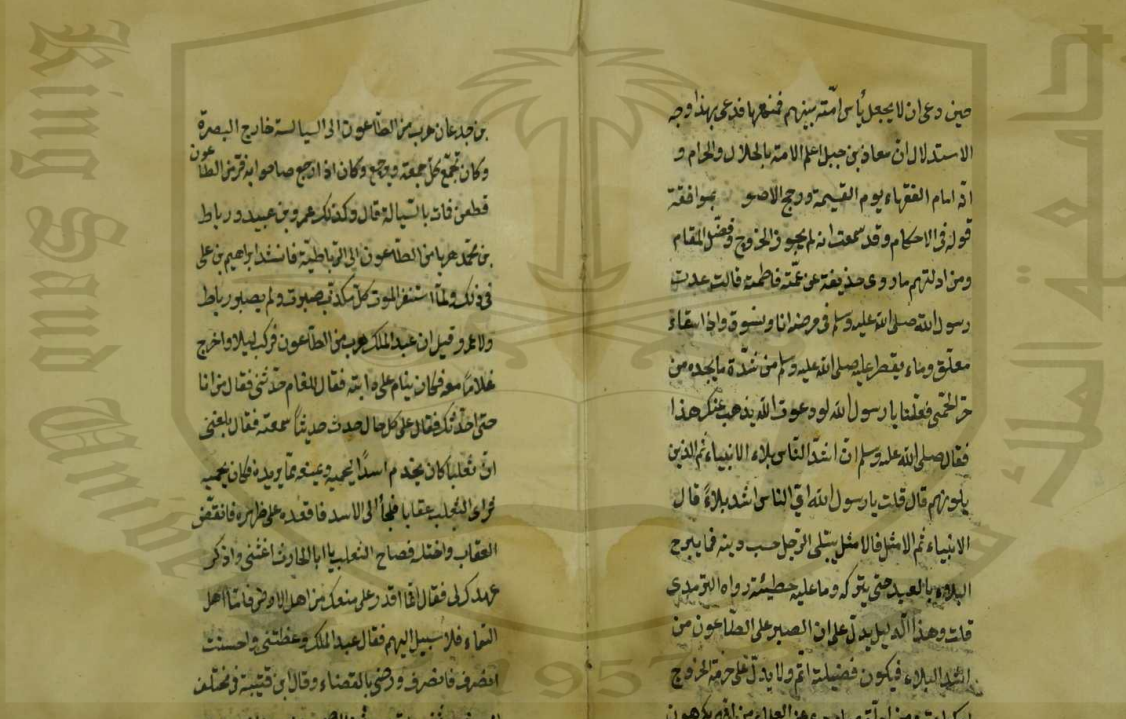 حين دعى ان لا يجعل بأس امته بينهم فمنعها فدعى بهذا وجه
الاستدلال ان معاذ بن جبل اعلم الامة بالحلال والحرام و
انه امام الفقهاء يوم القيمة ورجح الاصو بموافقة
قوله في الاحكام وقد سمعت انه لم يجوز الخروج وفضل المقام
ومن ادلتهم ما روى حذيفة عن عمته فاطمة قالت عدت
رسول الله صلى الله عليه وسلم في مرضه انا ونسوة واذا سقاء
معلق وماء يقطر عليه صلى الله عليه وسلم من شدة ما يجده من
حر الحمى فقلنا يا رسول الله لو دعوت الله يذهب عنك هذا
فقال صلى الله عليه وسلم ان اشد الناس بلاء الانبياء ثم الذين
يلونهم قال قلت يا رسول الله اي الناس اشد بلاءً قال
الانبياء ثم الامثل فالامثل يبتلى الرجل حسب دينه فما يبرح
البلاء بالعبد حتى يتركه وما عليه خطيئة رواه الترمذي
قلت وهذا الدليل يدل على ان الصبر على الطاعون من
اشد البلاء فيكون فضيلة اتم ولا يدل على حرمة الخروج
بن جدعان هرب من الطاعون الى السيالة خارج البصرة
وكان يجمع كل جمعة ويرجع وكان اذا رجع صاحوا به فر من الطاعون
فطعن فمات بالسيالة قال وكذلك عمرو بن عبيد ورباط
بن محمد هربا من الطاعون الى الرباطية فانشد ابراهيم بن على
في ذلك ولما استنفر الموت كل مكذب صبرت ولم يصبر رباط
ولا عمرو وقيل ان عبد الملك هرب من الطاعون فركب ليلا واخرج
غلاما معه فكان ينام على دابته فقال للغلام حدثني فقال من انا
حتى احدثك فقال على كل حال حدث حديثا سمعته فقال بلغني
ان ثعلبا كان يخدم اسدا ليحميه ويمنعه مما يريده فكان يحميه
فراى الثعلب عقابا فلجأ الى الاسد فاقعده على ظهره فانقض
العقاب واختلسه فصاح الثعلب يا ابا الحارث اغثني واذكر
عهدك لي فقال انما اقدر على منعك من اهل الارض فاما اهل
السماء فلا سبيل اليهم فقال عبد الملك وعظتني واحسنت
انصرف فانصرف ورضى بالقضاء وقال ابن قتيبة في مختلف
King Saud University
جامعة الملك
1957